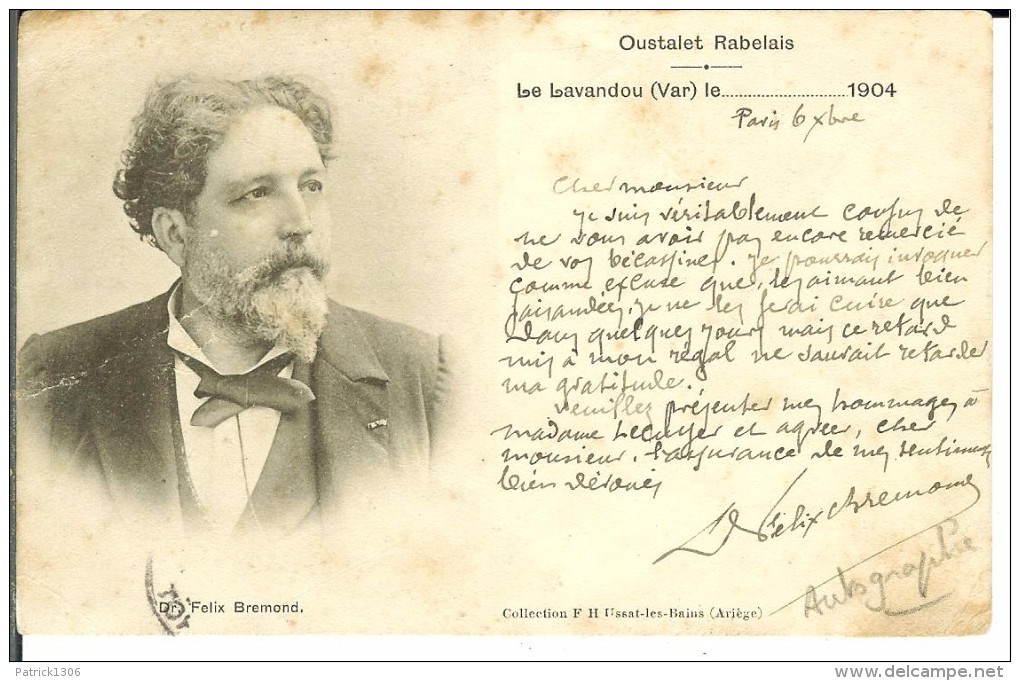 Oustalet Rabelais
Le Lavandou (Var) le..........................1904
Paris 6 xbre
Cher monsieur
Je suis véritablement confus de
ne vous avoir pas encore remercié
de vos bécassines. Je pourrais invoquer
comme excuse que, les aimant bien
faisandées, je ne les ferai cuire que
dans quelques jours mais ce retard
mis à mon régal ne saurait retarder
ma gratitude.
Veuillez présenter mes hommages à
madame Lecuyer et agréer, cher
monsieur, l'assurance de mes sentiments
bien dévoués
Dr Félix Bremond
Autographe
Dr. Felix Bremond.
Collection F H Ussat-les-Bains (Ariège)
Patrick1306
www.delcampe.net